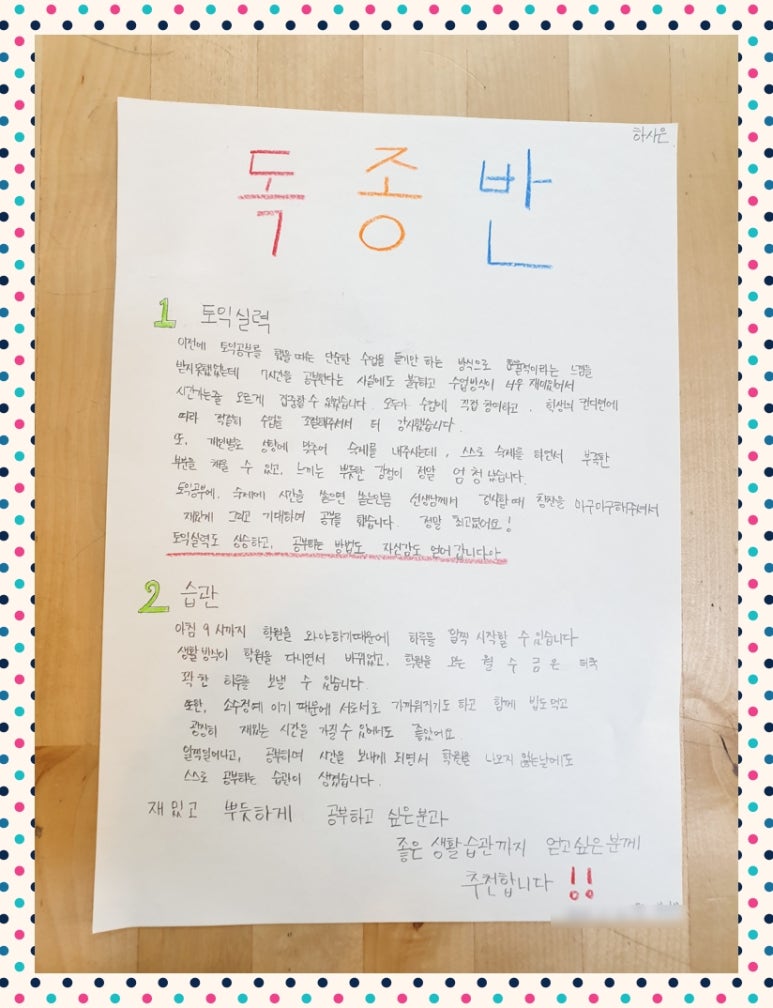 하사은
독종반
1 토익실력
이전에 토익공부를 했을 때는 단순한 수업을 듣기만 하는 방식으로 효율적이라는 느낌을
받지 못했었는데 7시간을 공부한다는 사실에도 불구하고 수업방식이 너무 재미있어서
시간가는줄 모르게 집중할 수 있었습니다. 모두가 수업에 직접 참여하고, 학생의 컨디션에
따라 적절히 수업을 조절해주셔서 더 감사했습니다.
또, 개인별로 상황에 맞추어 숙제를 내주시는데, 스스로 숙제를 하면서 부족한
부분을 채울 수 있고, 느끼는 뿌듯한 감정이 정말 엄청납습니다.
토익공부에, 숙제에 시간을 쏟으면 쏟은만큼 선생님께서 검사할때 칭찬을 마구마구해주셔서
재밌게 그리고 기대하며 공부를 했습니다. 정말 최고였어요!
토익실력도 상승하고, 공부하는 방법도, 자신감도 얻어갑니다아
2 습관
아침 9시까지 학원을 와야하기때문에 하루를 일찍 시작할 수 있습니다
생활방식이 학원을 다니면서 바뀌었고, 학원을 오는 월 수 금은 더욱
꽉 찬 하루를 보낼 수 있습니다.
또한, 소수정예 이기 때문에 서로서로 가까워지기도 하고 함께 밥도먹고
굉장히 재밌는 시간을 가질 수 있어서도 좋았어요.
일찍일어나고, 공부하며 시간을 보내게 되면서 학원을 나오지 않는날에도
스스로 공부하는 습관이 생겼습니다.
재밌고 뿌듯하게 공부하고 싶은분과
좋은 생활습관까지 얻고싶은분께
추천합니다!!